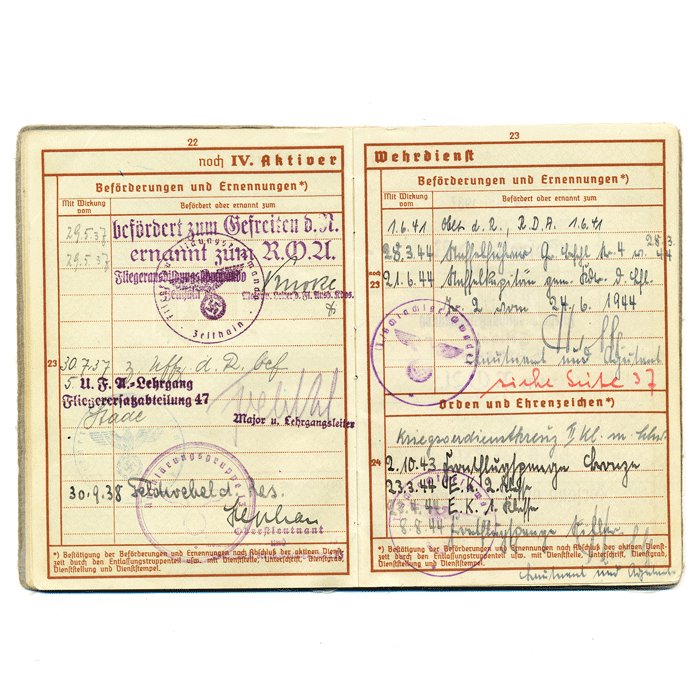 22
noch IV. Aktiver
Beförderungen und Ernennungen*)
Mit Wirkung vom
Befördert oder ernannt zum
29.5.37 befördert zum Gefreiten d.R.
29.5.37 ernannt zum R.O.A.
Fliegerausbildungskommando
Zeithain
Major u. Leiter d. Fl. Ausb. Kdos.
Zeithain
23 30.7.37 z. Uffz d. R. bef
5. U.F.A.-Lehrgang
Fliegerersatzabteilung 47
Stade
Major u. Lehrgangsleiter
30.9.38 Feldwebel d. Res.
Oberstleutnant
und
*) Bestätigung der Beförderungen und Ernennungen nach Abschluß der aktiven Dienst-
zeit durch den Entlassungstruppenteil usw. mit Dienststelle, Unterschrift, Dienstgrad,
Dienststellung und Dienststempel.
23
Wehrdienst
Beförderungen und Ernennungen*)
Mit Wirkung vom
Befördert oder ernannt zum
1.6.41 Oblt d. R., R.D.A. 1.6.41
28.3.44 Staffelführer 28.3.44
noch 23 21.6.44 Staffelkapitän gem.
24.6.1944
Leutnant und Adjutant
siehe Seite 37
Orden und Ehrenzeichen*)
Kriegsverdienstkreuz II Kl. m. Schw.
24 2.10.43 Frontflugspange Bronze
23.3.44 E.K. 2. Klasse
E.K. 1. Klasse
8.8.44 Frontflugspange Silber
*) Bestätigung der Beförderungen und Ernennungen nach Abschluß der aktiven Dienst-
zeit durch den Entlassungstruppenteil usw. mit Dienststelle, Unterschrift, Dienstgrad,
Dienststellung und Dienststempel.
Leutnant und Adjutant